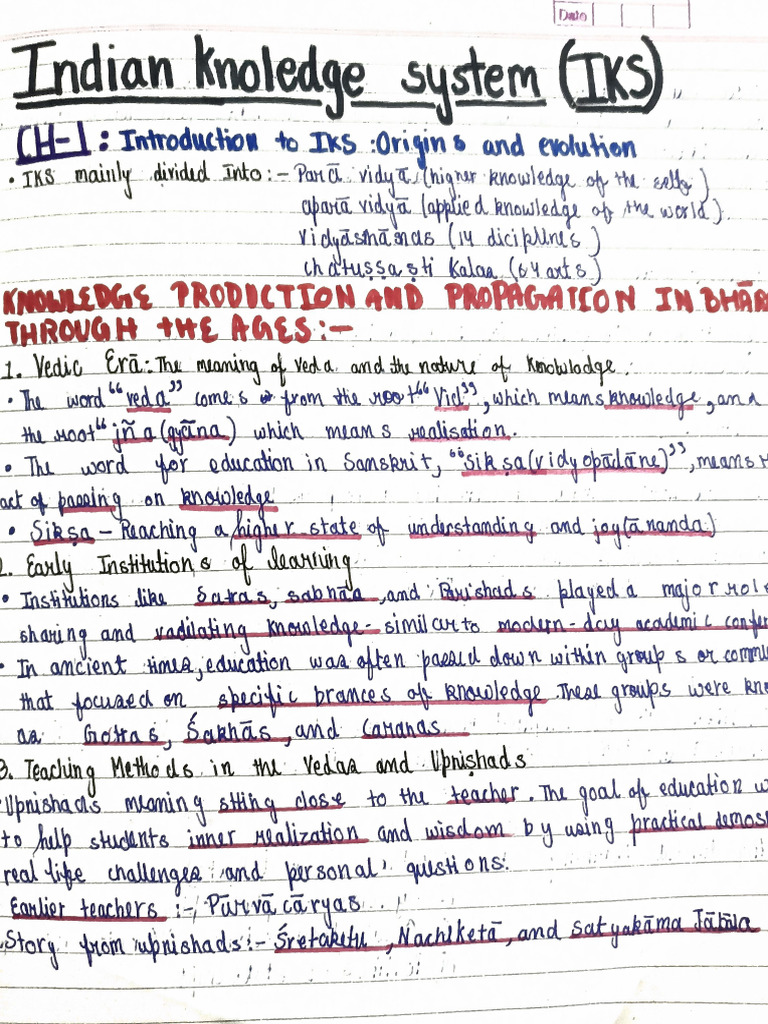 Date
Indian Knoledge system (IKS)
CH-1: Introduction to IKS :Origins and evolution
• IKS mainly divided into:- Parā vidyā (higher knowledge of the self)
aparā vidyā (applied knowledge of the world).
vidyāsthānas (14 diciplines)
chatuṣṣaṣṭi Kalas (64 arts)
KNOWLEDGE PRODUCTION AND PROPAGATION IN BHĀR
THROUGH THE AGES:-
1. Vedic Erā: The meaning of Veda and the nature of Knowladge.
• The word "veda" comes from the root "Vid", which means knowledge, and
the root "jña (gyāna) which means realisation.
• The word for education in Sanskrit, "Sikṣa (vidyopādāne)", means
act of passing on knowledge
• Sikṣa - Reaching a higher state of understanding and joy (ānanda)
2. Early Institutions of learning
• Institutions like sabhāa, and Parishads played a major role
sharing and vadilating knowledge- similar to modern-day academic confer
• In ancient times, education was often passed down within groups or commu
that focused on specific brances of knowledge. These groups were kno
as Gotras, Śakhās, and Caranas
3. Teaching Methods in the Vedas and Upniṣhads
Upnishads meaning sitting close to the teacher. The goal of education w
to help students inner realization and wisdom by using practical demos
real life challenges and personal questions.
Earlier teachers :- Pūrvācāryas
Story from upnishads:- Śvetaketu, Nachiketā, and Satyakāma Jābāla